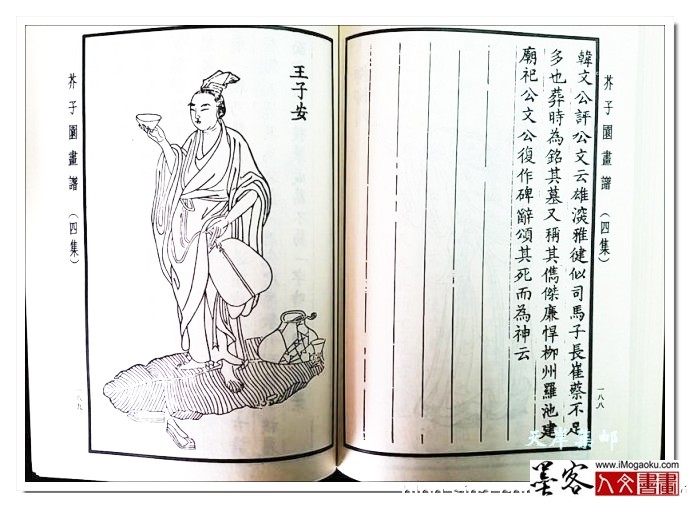 芥子園畫譜 (四集)
一八八
韓文公評公文云雄深雅健似司馬子長崔蔡不足
多也葬時為銘其墓又稱其儁傑廉悍柳州羅池建
廟祀公文公復作碑辭頌其死而為神云
王子安
芥子園畫譜 (四集)
一八九
天岸集邮
墨客
www.iMogaoku.com
人文書畫